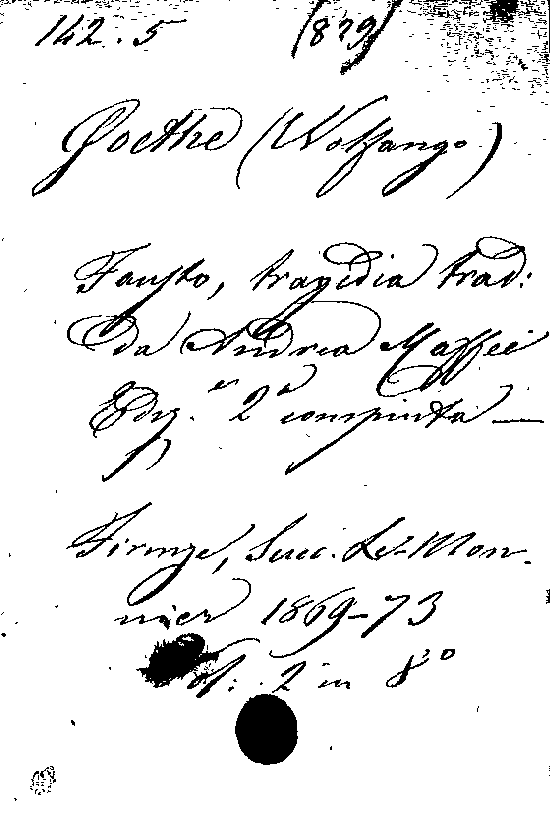 142.5 (879)
Goethe (Wolfango)
Fausto, tragedia trad:
da Andrea Maffei
Ediz.ⁿᵉ 2ᵃ compiuta —
Firenze, Succ. Le-Mon-
nier 1869-73
Vol: 2 in 8°